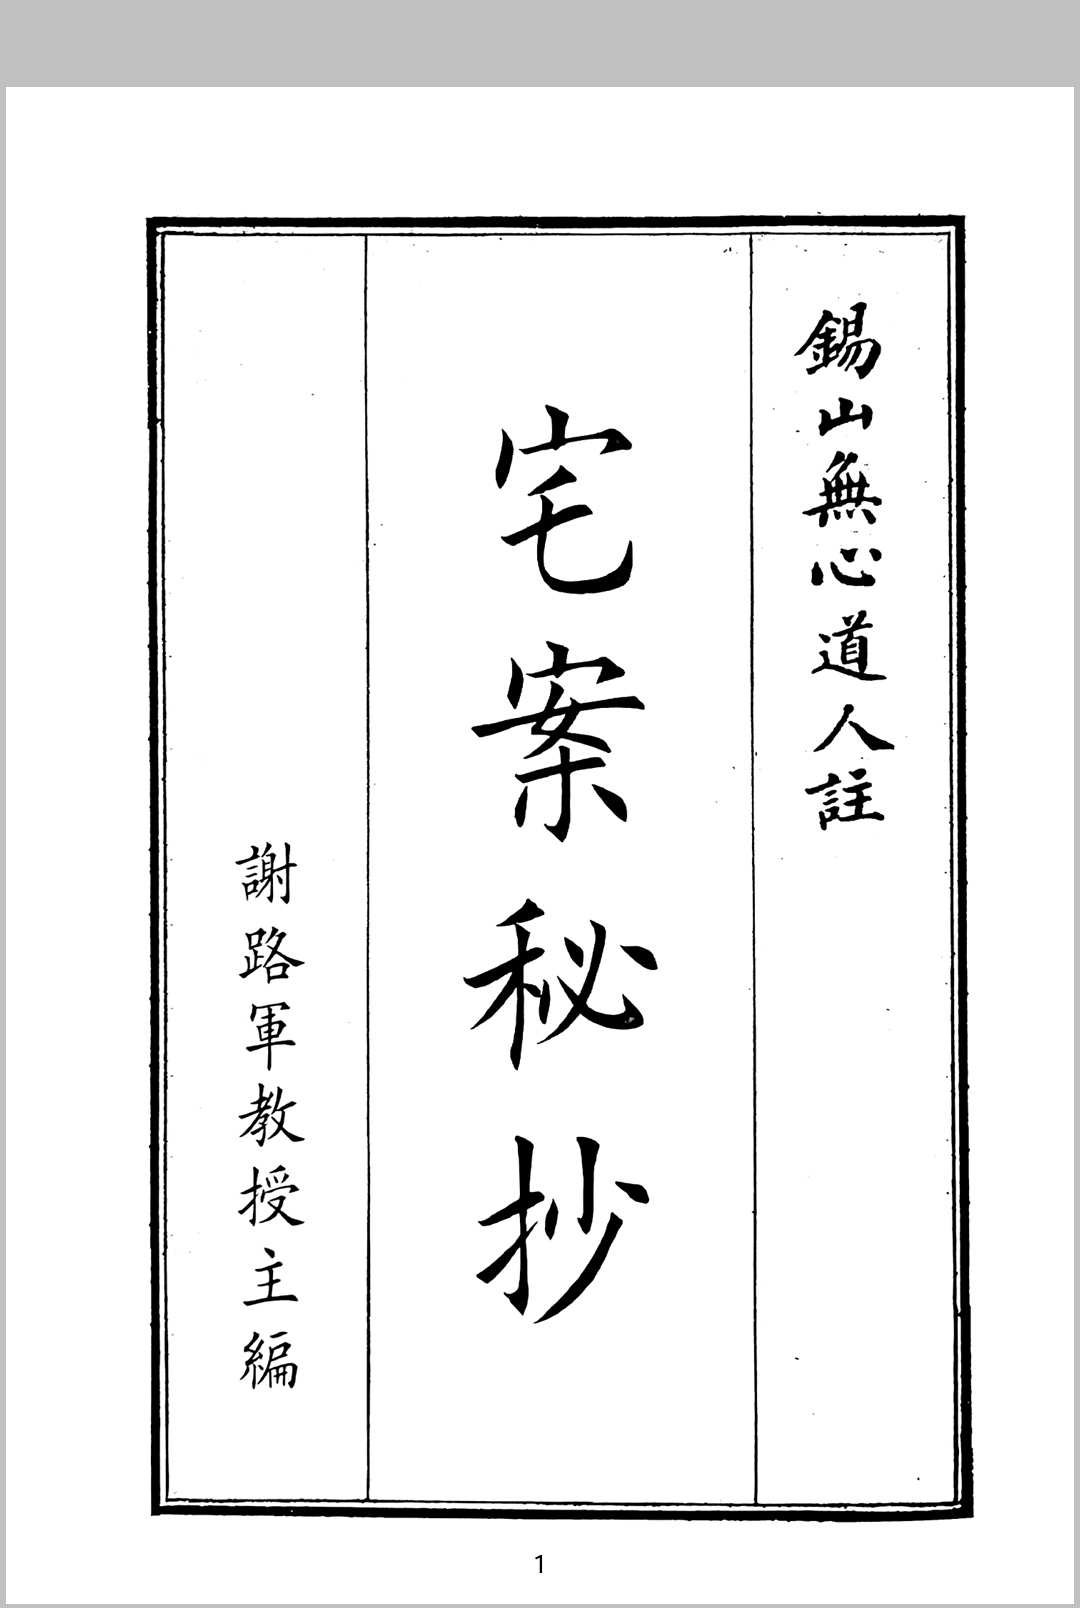 錫山無心道人註
宅案秘抄
謝路軍教授主編
1